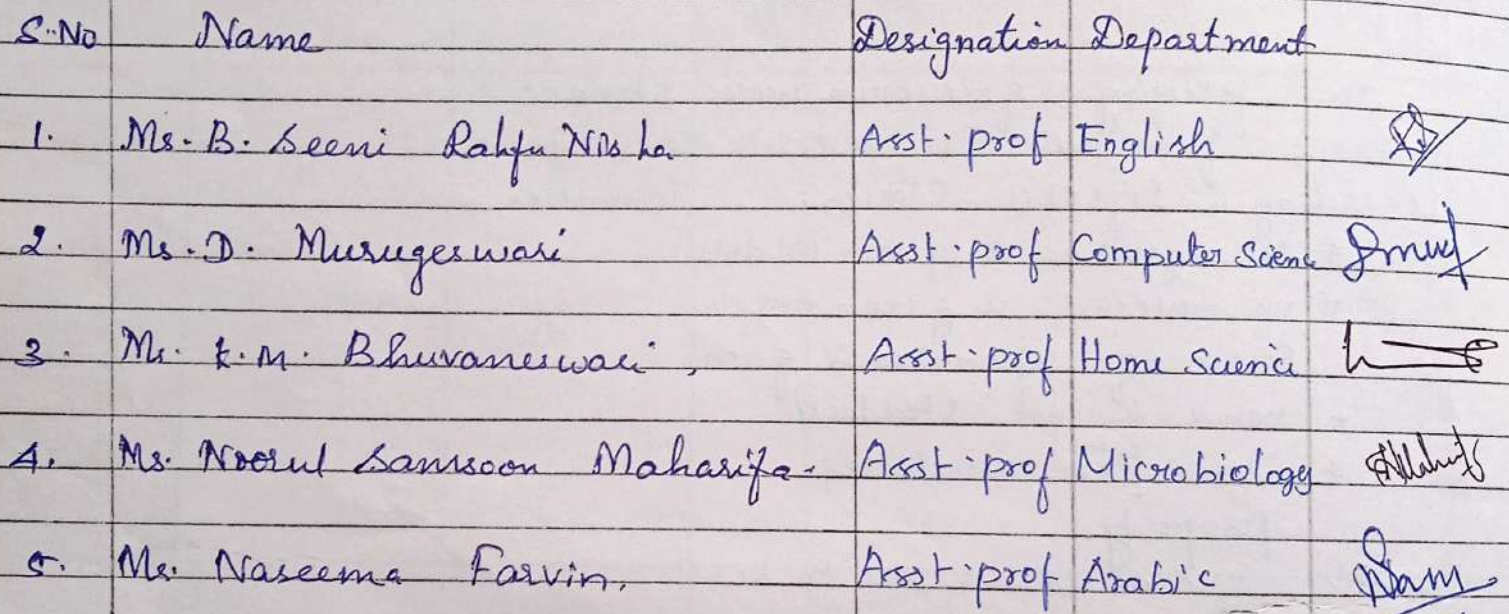 S.No Name Designation Department
1. Ms. B. Seeni Rahfu Nisha Asst. prof English
2. Ms. D. Murugeswari Asst. prof Computer Scienc
3. Ms. K.M. Bhuvaneswari, Asst. prof Home Science
4. Ms. Noorul Samsoon Maharifa. Asst. prof Microbiology
5. Ms. Naseema Farvin. Asst. prof Arabic